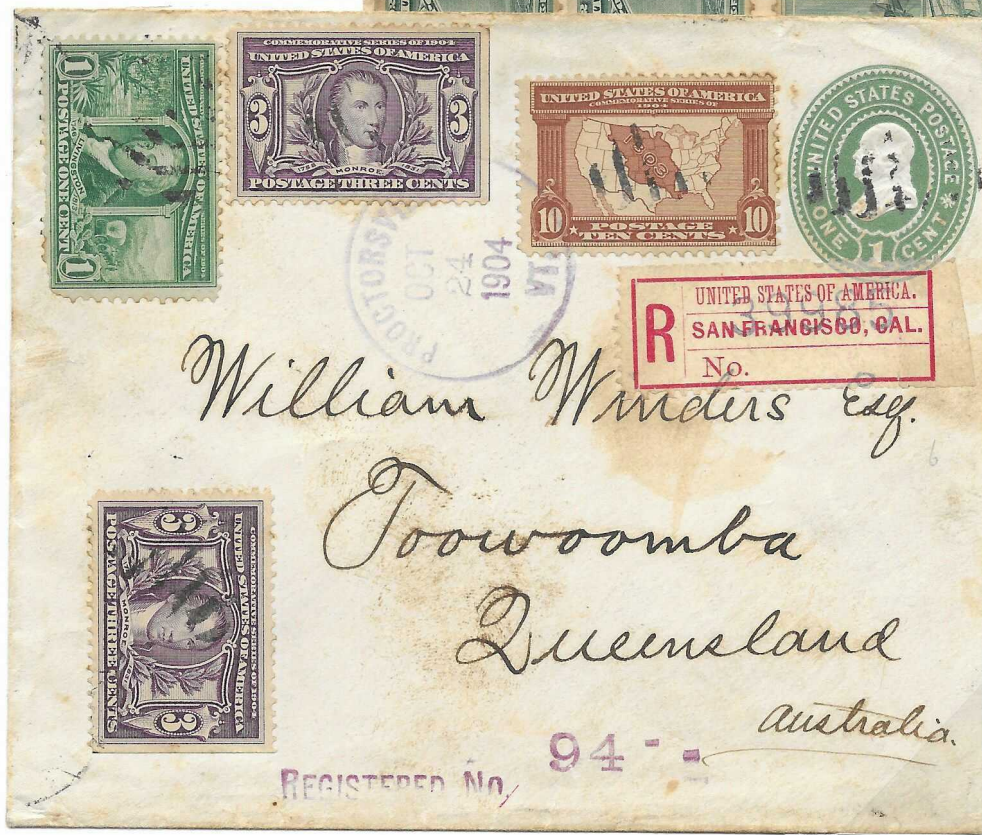 COMMEMORATIVE SERIES OF 1904
UNITED STATES OF AMERICA
1
POSTAGE ONE CENT
1
COMMEMORATIVE SERIES OF 1904
UNITED STATES OF AMERICA
3 3
MONROE
POSTAGE THREE CENTS
UNITED STATES OF AMERICA
COMMEMORATIVE SERIES OF
1904
1803
10 10
POSTAGE
TEN CENTS
UNITED STATES POSTAGE
ONE 1 CENT
OCT
24
1904
VT.
UNITED STATES OF AMERICA.
R SAN FRANCISCO, CAL.
No. 39985
William Winders Esq.
Toowoomba
Queensland
Australia.
COMMEMORATIVE SERIES OF 1904
UNITED STATES OF AMERICA
3 3
MONROE
POSTAGE THREE CENTS
REGISTERED No, 94